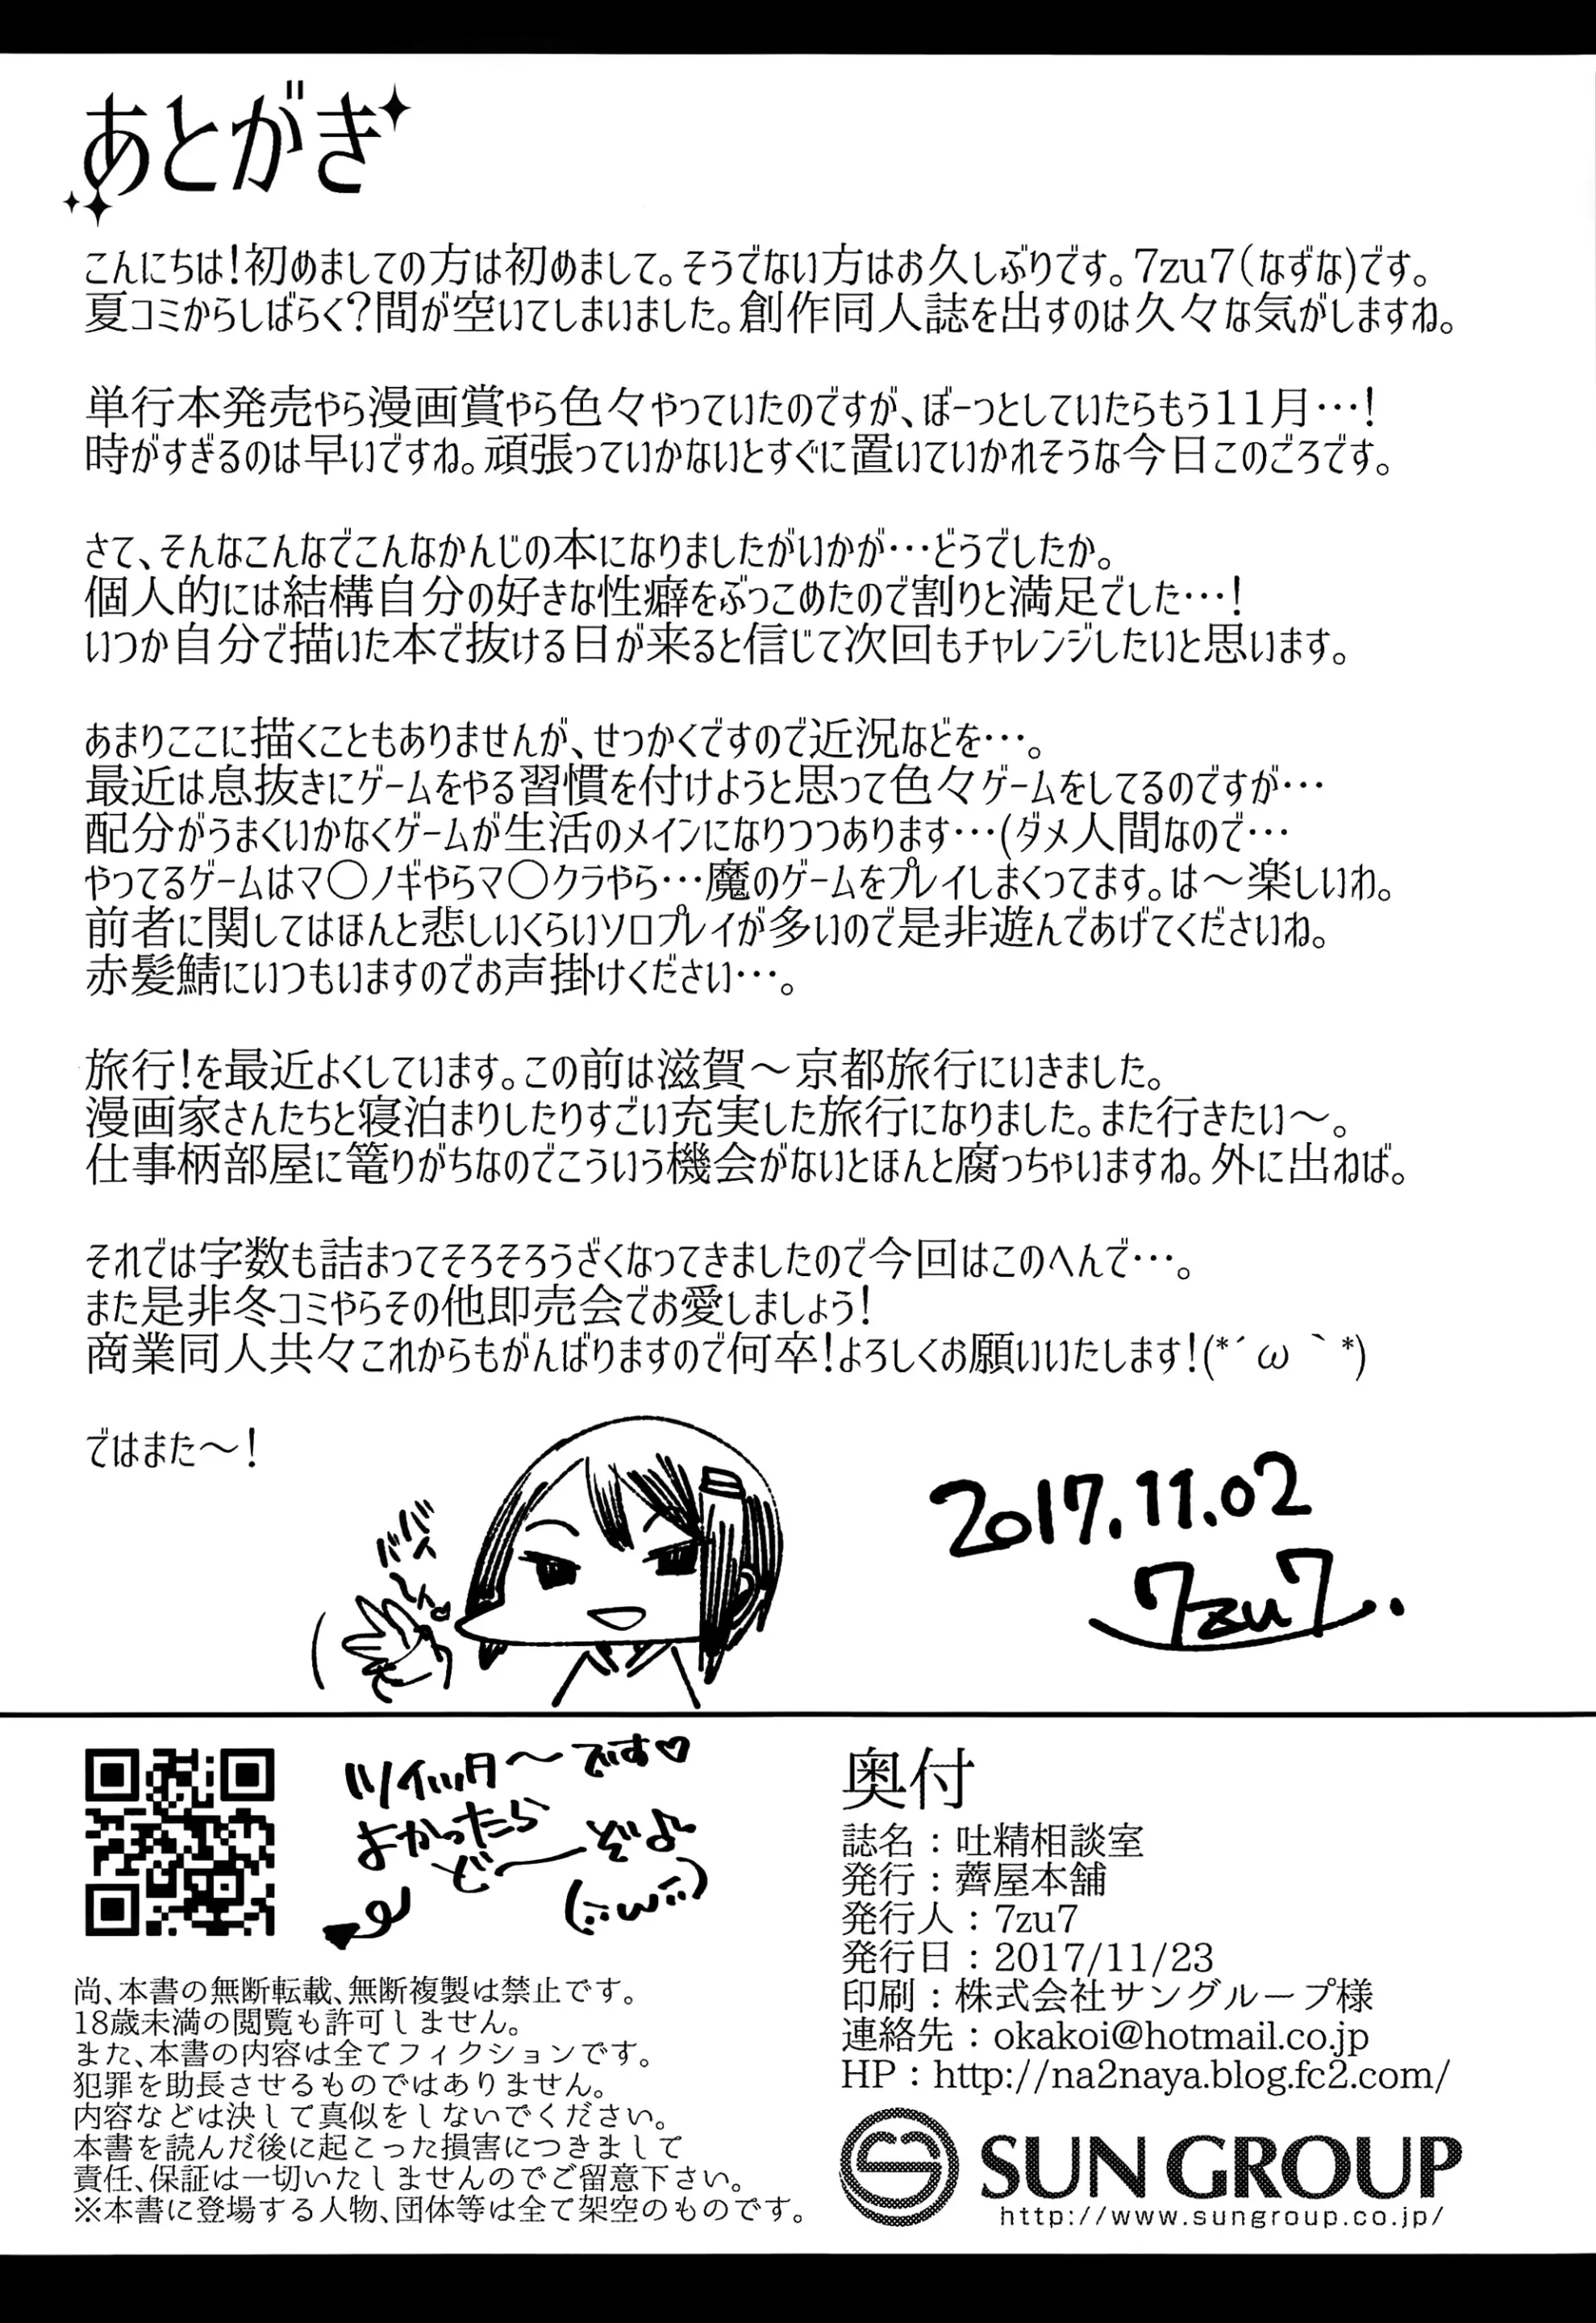 あとがき
こんにちは！初めましての方は初めまして。そうでない方はお久しぶりです。7zu7（なずな)です。
夏コミからしばらく？間が空いてしまいました。創作同人誌を出すのは久々な気がしますね。
単行本発売やら漫画賞やら色々やっていたのですが、ぼーっとしていたらもう11月…！
時がすぎるのは早いですね。頑張っていかないとすぐに置いていかれそうな今日このごろです。
さて、そんなこんなでこんなかんじの本になりましたがいかが…どうでしたか。
個人的には結構自分の好きな性癖をぶっこめたので割りと満足でした…！
いつか自分で描いた本で抜ける日が来ると信じて次回もチャレンジしたいと思います。
あまりここに描くこともありませんが、せっかくですので近況などを…。
最近は息抜きにゲームをやる習慣を付けようと思って色々ゲームをしてるのですが…
配分がうまくいかなくゲームが生活のメインになりつつあります…(ダメ人間なので…
やってるゲームはマ〇ノギやらマ〇クラやら…魔のゲームをプレイしまくってます。は～楽しいわ。
前者に関してはほんと悲しいくらいソロプレイが多いので是非遊んであげてくださいね。
赤髪鯖にいつもいますのでお声掛けください…。
旅行！を最近よくしています。この前は滋賀～京都旅行にいきました。
漫画家さんたちと寝泊まりしたりすごい充実した旅行になりました。また行きたい～。
仕事柄部屋に篭りがちなのでこういう機会がないとほんと腐っちゃいますね。外に出ねば。
それでは字数も詰まってそろそろうざくなってきましたので今回はこのへんで…。
また是非冬コミやらその他即売会でお愛しましょう！
商業同人共々これからもがんばりますので何卒！よろしくお願いいたします！(*´ω｀*)
ではまた～！
2017.11.02
7zu7.
ツイッタ～です♡
よかったら
ど――ぞ♪
奥付
誌名：吐精相談室
発行：薺屋本舗
発行人：7zu7
発行日：2017/11/23
印刷：株式会社サングループ様
連絡先：okakoi@hotmail.co.jp
HP：http://na2naya.blog.fc2.com/
尚、本書の無断転載、無断複製は禁止です。
18歳未満の閲覧も許可しません。
また、本書の内容は全てフィクションです。
犯罪を助長させるものではありません。
内容などは決して真似をしないでください。
本書を読んだ後に起こった損害につきまして
責任、保証は一切いたしませんのでご留意下さい。
※本書に登場する人物、団体等は全て架空のものです。
SUN GROUP
http://www.sungroup.co.jp/